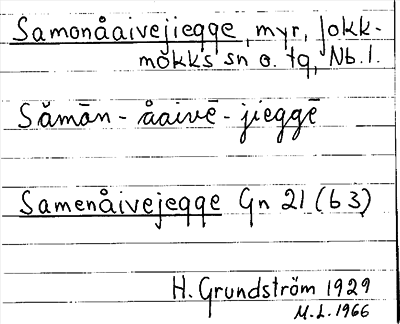 Samonåaivejiegge, myr, Jokk-
mokks sn o. tg, Nb. l.
Sămān - åaivē - jieggē
Samenåivejegge Gn 21 (b 3)
H. Grundström 1929
M.L. 1966